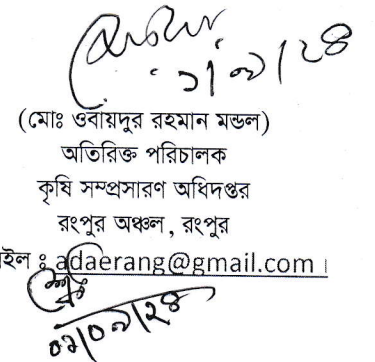 ১/৯/২৪
(মোঃ ওবায়দুর রহমান মন্ডল)
অতিরিক্ত পরিচালক
কৃষি সম্প্রসারণ অধিদপ্তর
রংপুর অঞ্চল, রংপুর
ইল ঃ adaerang@gmail.com ।
০১/০৯/২৪